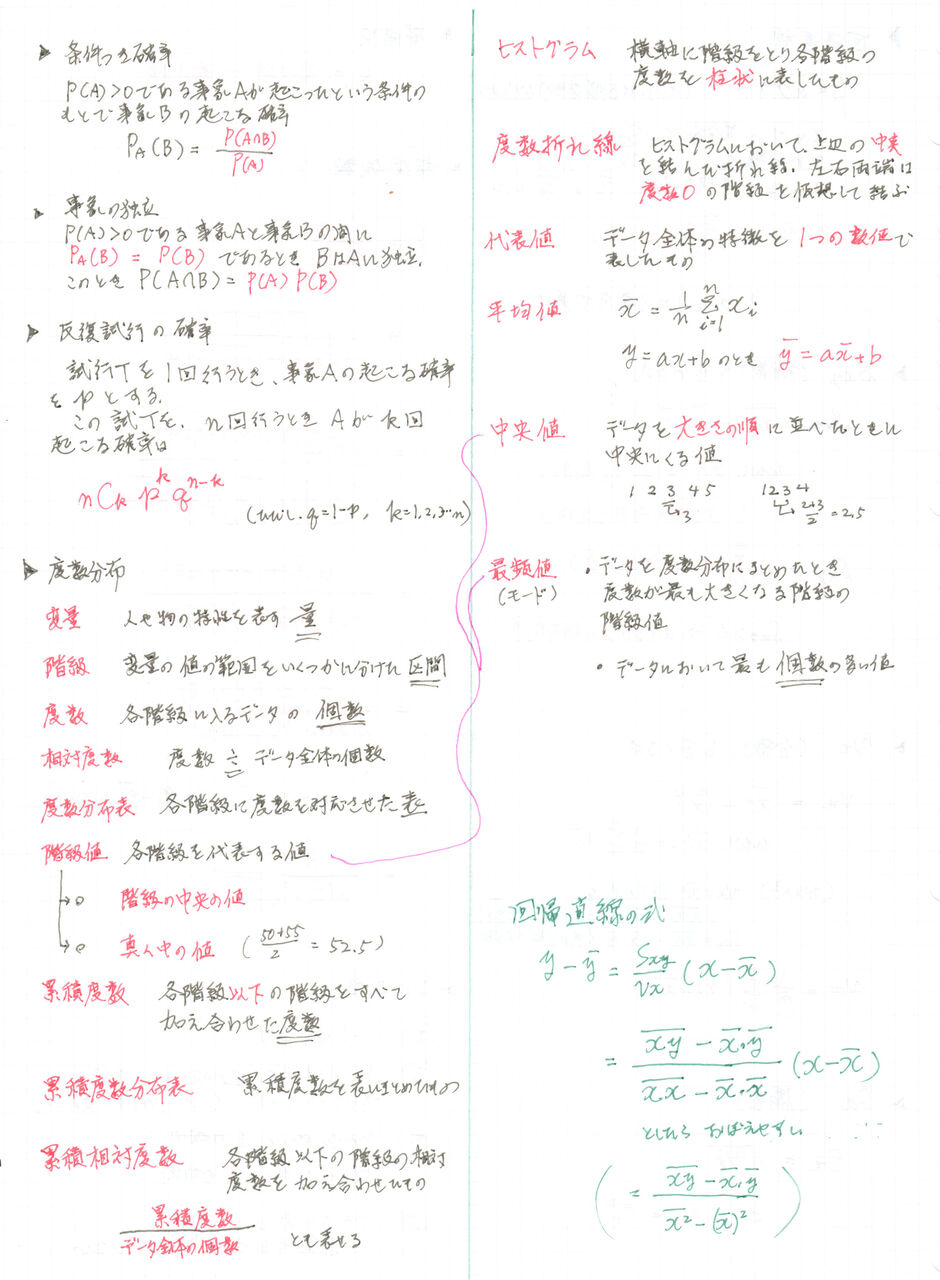 ▶ 条件つき確率
P(A)>0である事象Aが起こったという条件の
もとで事象Bの起こる確率
P_A(B) = P(A∩B) / P(A)
▶ 事象の独立
P(A)>0である事象Aと事象Bの間に
P_A(B) = P(B) であるとき BはAに独立.
このとき P(A∩B) = P(A) P(B)
▶ 反復試行の確率
試行Tを1回行うとき、事象Aの起こる確率
を p とする.
この試行Tを、n回行うとき Aがk回
起こる確率は
nCk p^k q^(n-k)
(ただし. q=1-p, k=1,2,3…n)
▶ 度数分布
変量 人や物の特性を表す量
階級 変量の値の範囲をいくつかに分けた区間
度数 各階級に入るデータの個数
相対度数 度数 ÷ データ全体の個数
度数分布表 各階級に度数を対応させた表
階級値 各階級を代表する値
→ 階級の中央の値
→ 真ん中の値 ( (50+55)/2 = 52.5)
累積度数 各階級以下の階級をすべて
加え合わせた度数
累積度数分布表 累積度数を表にまとめたもの
累積相対度数 各階級以下の階級の相対
度数を加え合わせたもの
累積度数 / データ全体の個数 とも表せる
ヒストグラム 横軸に階級をとり各階級の
度数を柱状に表したもの
度数折れ線 ヒストグラムにおいて、上辺の中点
を結んだ折れ線. 左右両端は
度数0の階級を仮想して結ぶ
代表値 データ全体の特徴を1つの数値で
表したもの
平均値 x̄ = 1/n Σ[i=1→n] xi
y=ax+bのとき ȳ=ax̄+b
中央値 データを大きさの順に並べたときに
中央にくる値
1 2 3 4 5 →3 1 2 3 4 → (2+3)/2 = 2.5
最頻値 ・データを度数分布にまとめたとき
(モード) 度数が最も大きくなる階級の
階級値
・データにおいて最も個数の多い値
回帰直線の式
y-ȳ = Sxy / Vx (x-x̄)
= (x̅y̅ - x̄・ȳ) / (x̅x̅ - x̄・x̄) (x-x̄)
としたら おぼえやすい
( = (x̅y̅ - x̄・ȳ) / (x̅²̅ - (x̄)²) )